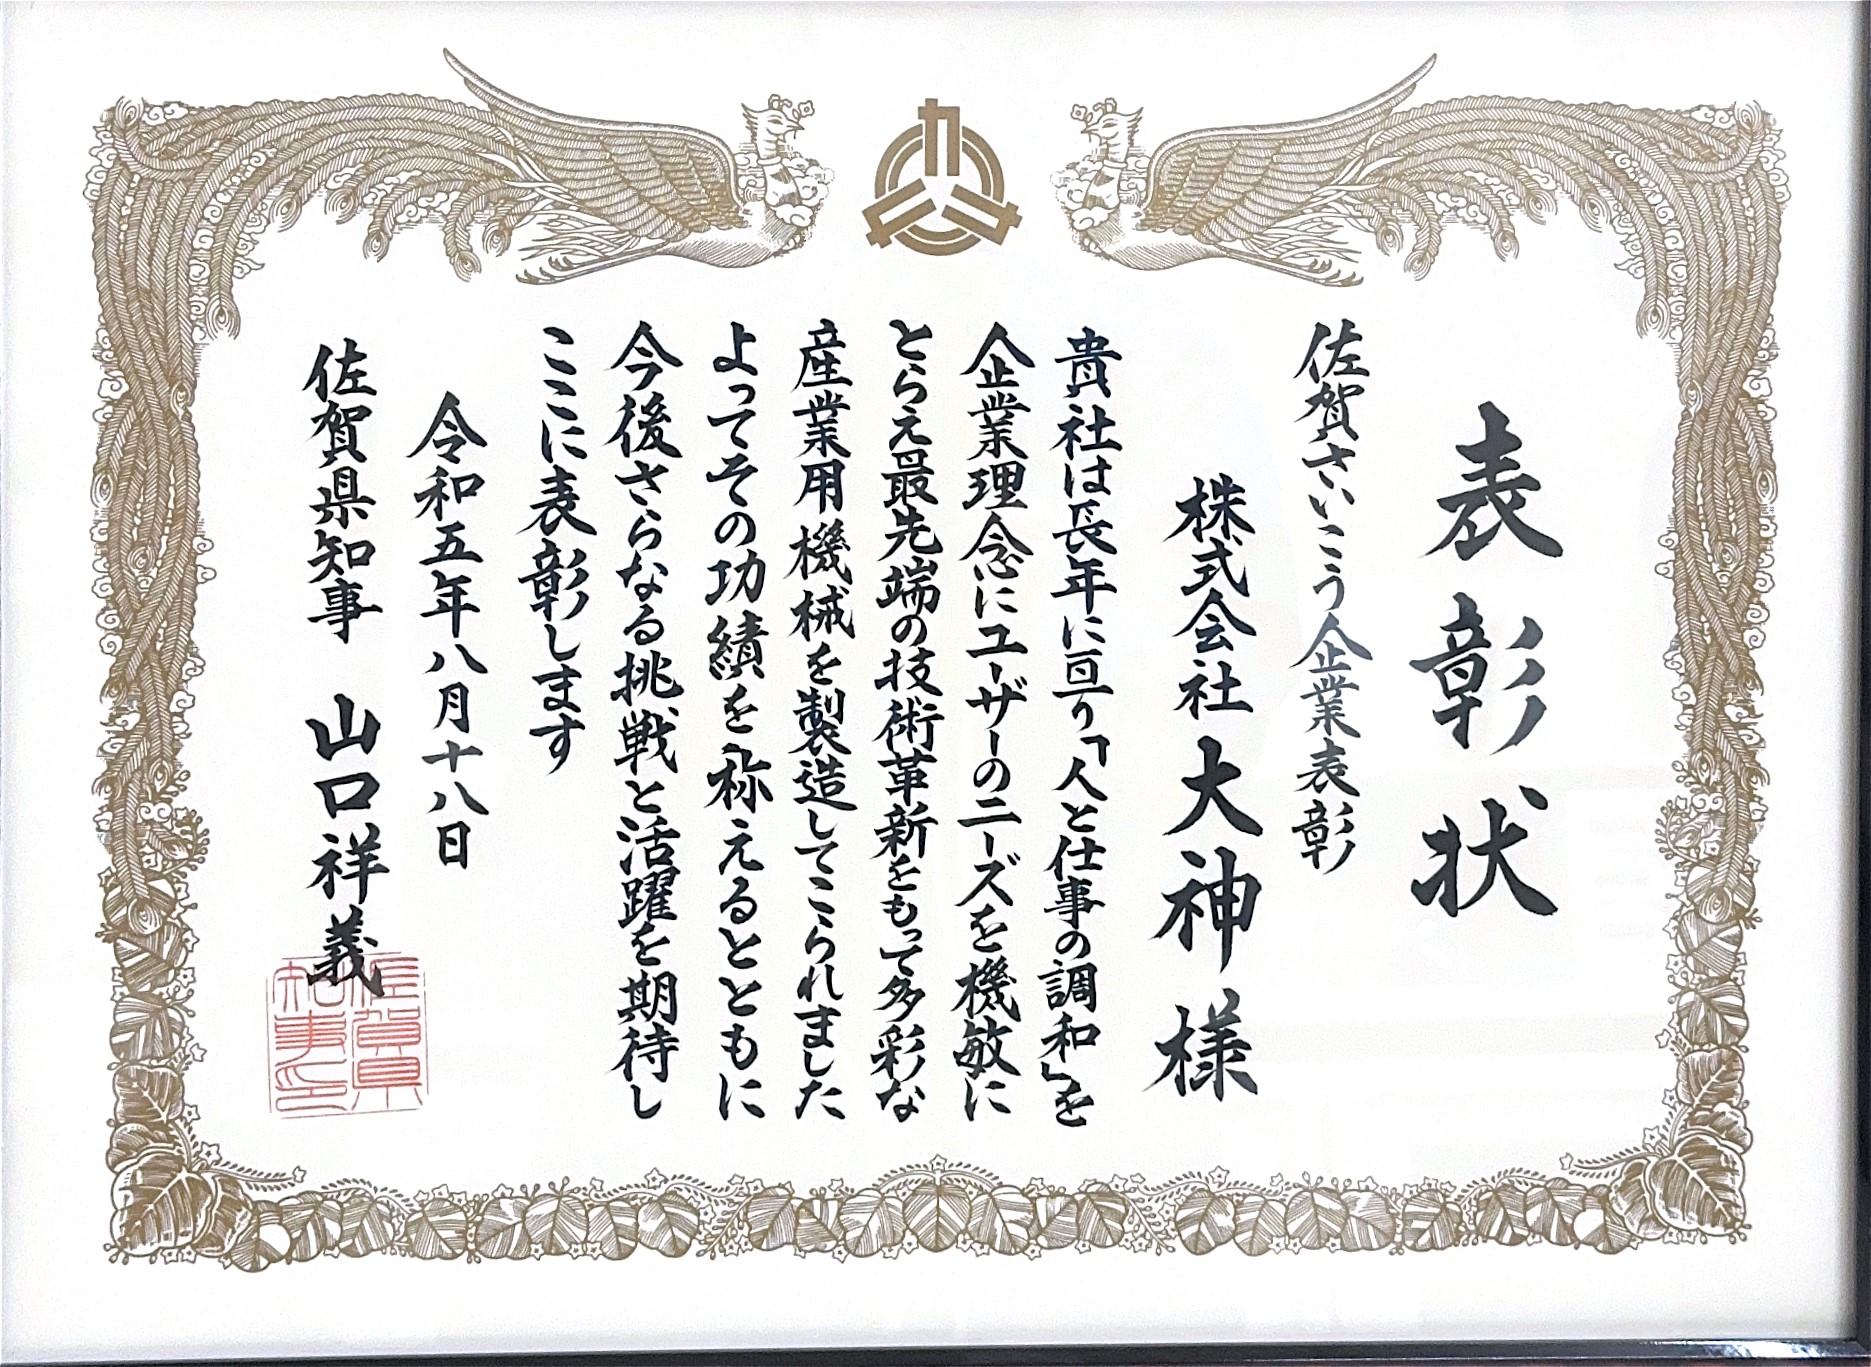 表彰状
佐賀さいこう企業表彰
株式会社大神 様
貴社は長年に亘り「人と仕事の調和」を
企業理念にユーザーのニーズを機敏に
とらえ最先端の技術革新をもって多彩な
産業用機械を製造してこられました
よってその功績を称えるとともに
今後さらなる挑戦と活躍を期待し
ここに表彰します
令和五年八月十八日
佐賀県知事 山口祥義
佐賀県
知事印